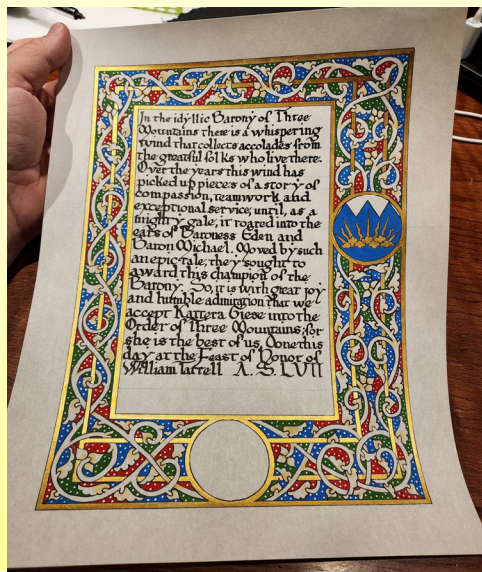 In the idyllic Barony of Three
Mountains there is a whispering
wind that collects accolades from
the greatful folks who live there.
Over the years this wind has
picked up pieces of a story of
compassion, teamwork and
exceptional service; until, as a
mighty gale, it roared into the
ears of Baroness Eden and
Baron Michael. Moved by such
an epic tale, they sought to
award this champion of the
Barony. So, it is with great joy
and humble admiration that we
accept Kattera Giese into the
Order of Three Mountains; for
she is the best of us. Done this
day at the Feast of Honor of
William Tattell A.S. LVII